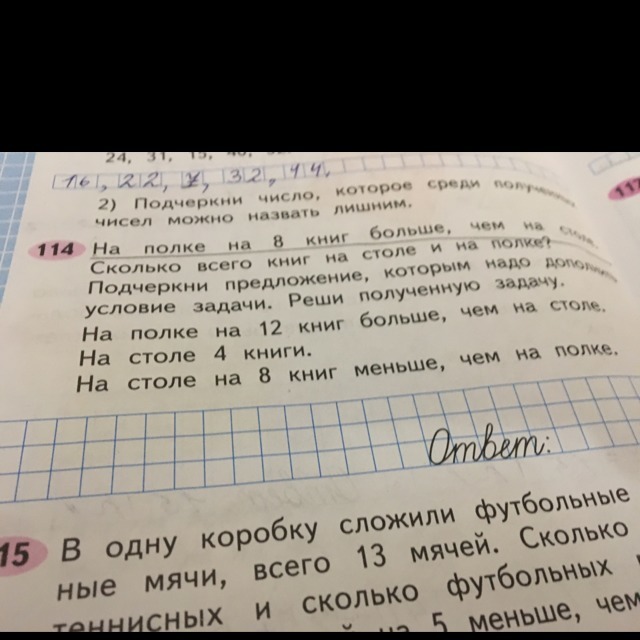 24, 31, 15, 40,
16, 22, 7, 32, 44.
2) Подчеркни число, которое среди полученных
чисел можно назвать лишним.
117
114 На полке на 8 книг больше, чем на столе.
Сколько всего книг на столе и на полке?
Подчеркни предложение, которым надо дополнить
условие задачи. Реши полученную задачу.
На полке на 12 книг больше, чем на столе.
На столе 4 книги.
На столе на 8 книг меньше, чем на полке.
Ответ:
15 В одну коробку сложили футбольные
ные мячи, всего 13 мячей. Сколько
теннисных и сколько футбольных
на 5 меньше, чем